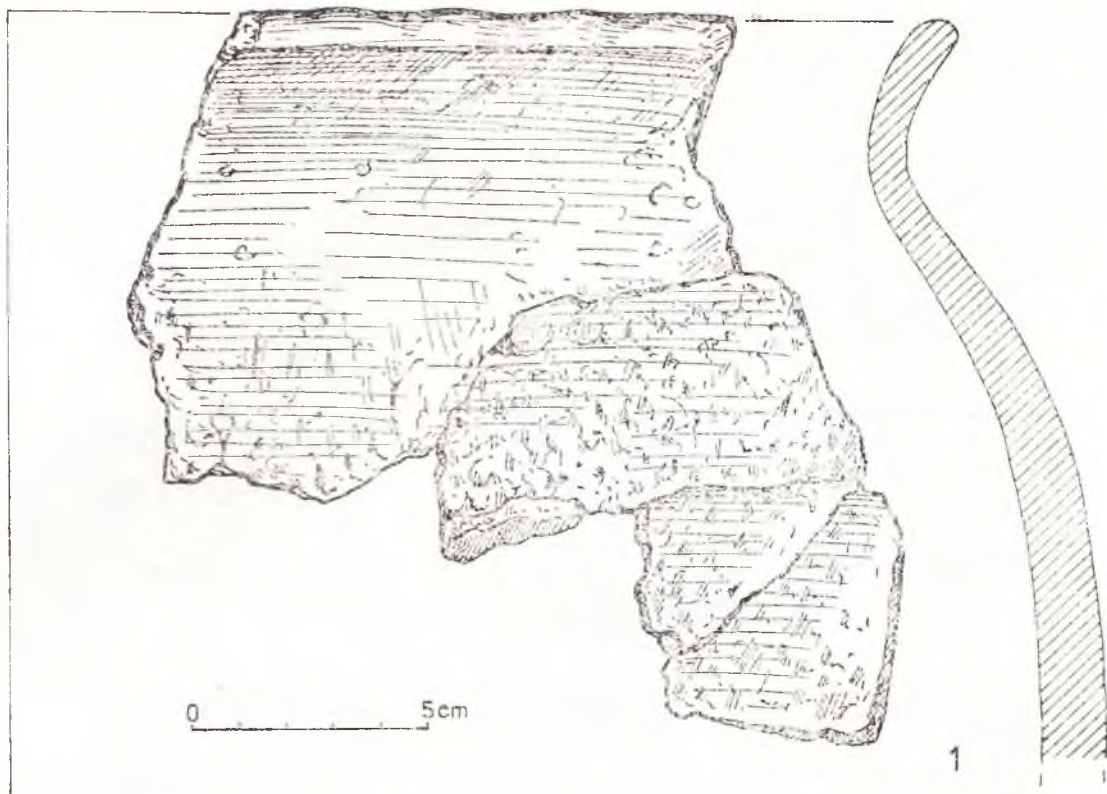 0 5cm
1